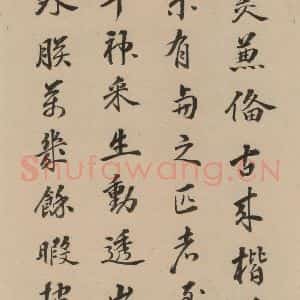 兼備古來楷
有與之匹者
神采生動透
朕萬幾餘暇
Shufawang.CN